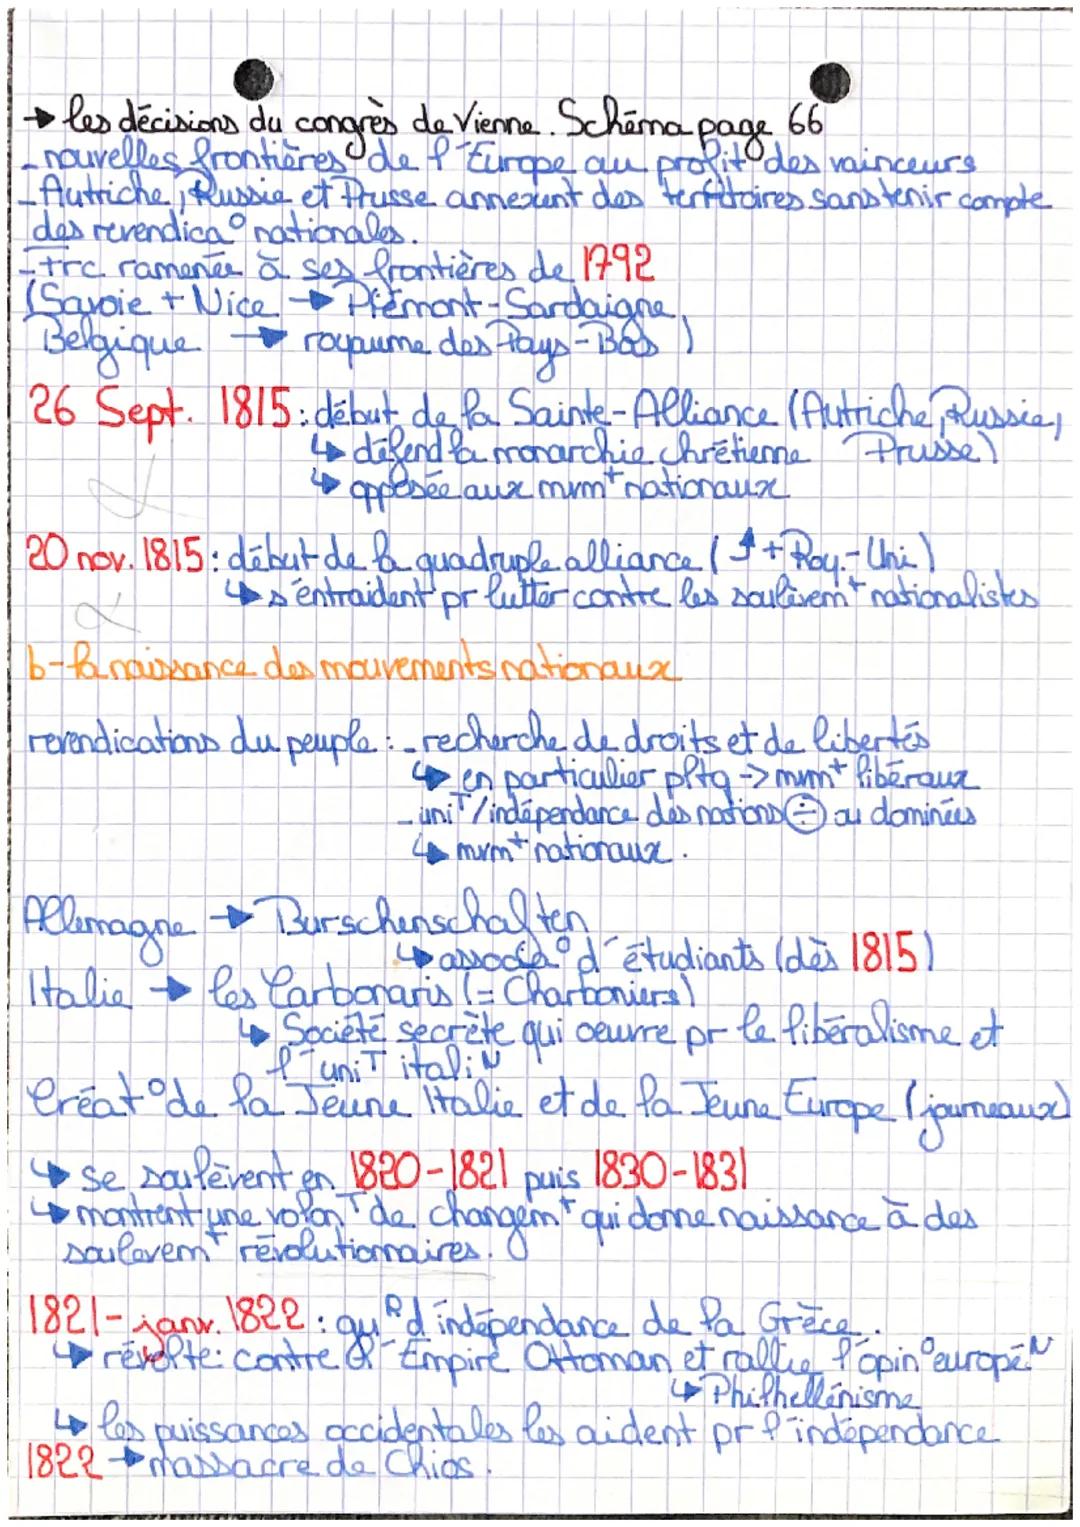 → les décisions du congrès de Vienne. Schéma page 66
- nouvelles frontières de l'Europe au profit des vainceurs
- Autriche, Russie et Prusse annexent des territoires sans tenir compte
des revendica° nationales.
- Frc ramenée à ses frontières de 1792
(Savoie + Nice → Piémont-Sardaigne,
Belgique → royaume des Pays-Bas)
26 Sept. 1815 : début de la Sainte-Alliance (Autriche, Russie,
↳ défend la monarchie chrétienne Prusse)
↳ opposée aux mvmt nationaux
20 nov. 1815 : début de la quadruple alliance (↑ + Roy.-Uni)
↳ s'entraident pr lutter contre les soulèvemt nationalistes
b - la naissance des mouvements nationaux
revendications du peuple : - recherche de droits et de libertés
↳ en particulier pltq -> mvmt libéraux
- uniT/indépendance des nations ÷ ou dominées
↳ mvmt nationaux.
Allemagne → Burschenschaften
↳ associa° d'étudiants (dès 1815)
Italie → les Carbonaris (= Charboniers)
↳ Société secrète qui oeuvre pr le libéralisme et
l'uniT italiN
Créat° de la Jeune Italie et de la Jeune Europe (journeaux)
↳ se soulèvent en 1820-1821 puis 1830-1831
↳ montrent une volonT de changemt qui donne naissance à des
soulevemt révolutionnaires.
1821 - janv. 1822 : guR d'indépendance de la Grèce.
↳ révolte contre l'Empire Ottoman et rallie l'opin° européN
↳ Philhellénisme
↳ les puissances occidentales les aident pr l'indépendance
1822 → massacre de Chios.